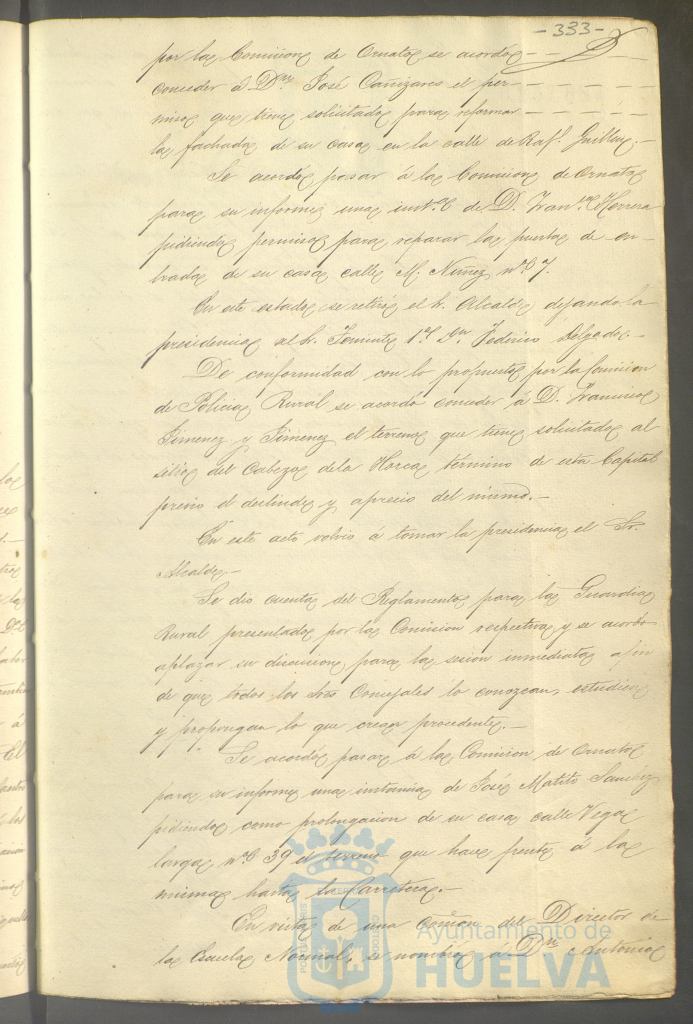 - 333 -
por la Comision de Ornato se acordó
conceder á Dn José Cañizares el per-
miso que tiene solicitado para reformar
la fachada de su casa en la calle de Raf.l Guillen.-
Se acordó pasar á la Comision de Ornato
para su informe una inst.ª de D. Fran.co Herrera
pidiendo permiso para reparar la puerta de en-
trada de su casa calle M. Nuñez nº 7.
En este estado se retiró el Sr. Alcalde dejando la
presidencia al Sr. Teniente 1º Dn Federico Delgado.-
De conformidad con lo propuesto por la Comision
de Policia Rural se acordó conceder á D. Francisco
Jimenez y Jimenez el terreno que tiene solicitado al
sitio del Cabezo de la Horca término de esta Capital
previo el deslinde y aprecio del mismo.-
En este acto volvió á tomar la presidencia el Sr.
Alcalde.-
Se dio cuenta del Reglamento para la Guardia
Rural presentado por la Comision respectiva y se acordó
aplazar su discusion para la sesion inmediata a fin
de que todos los Sres Concejales lo conozcan, estudien
y propongan lo que crean procedente.-
Se acordó pasar á la Comision de Ornato
para su informe una instancia de José Matito Sanchez
pidiendo como prolongacion de su casa calle Vega
larga nº 39 el terreno que hace frente á la
misma hasta la Carretera.-
En vista de una comon del Director de
la Escuela Normal, se nombró á Dn Antonio
Ayuntamiento de
HUELVA